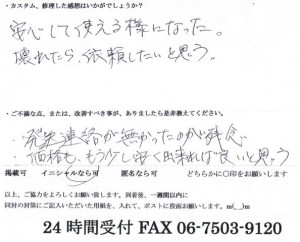 ・カスタム、修理した感想はいかがでしょうか？
安心して使える様になった。
壊れたら、依頼したいと思う。
・ご不満な点、または、改善すべき事が、ありましたら是非教えてください。
・発送連絡が無かったのが残念
・価格も、もう少し安く出来れば良いと思う
掲載可 イニシャルなら可 匿名なら可 どちらかに〇印をお願いします
以上、ご協力をよろしくお願い致します。到着後、一週間以内に
同封の封筒にご記入いただいた用紙を、入れて、ポストに投函お願いします。m(__)m
24 時間受付 FAX 06-7503-9120